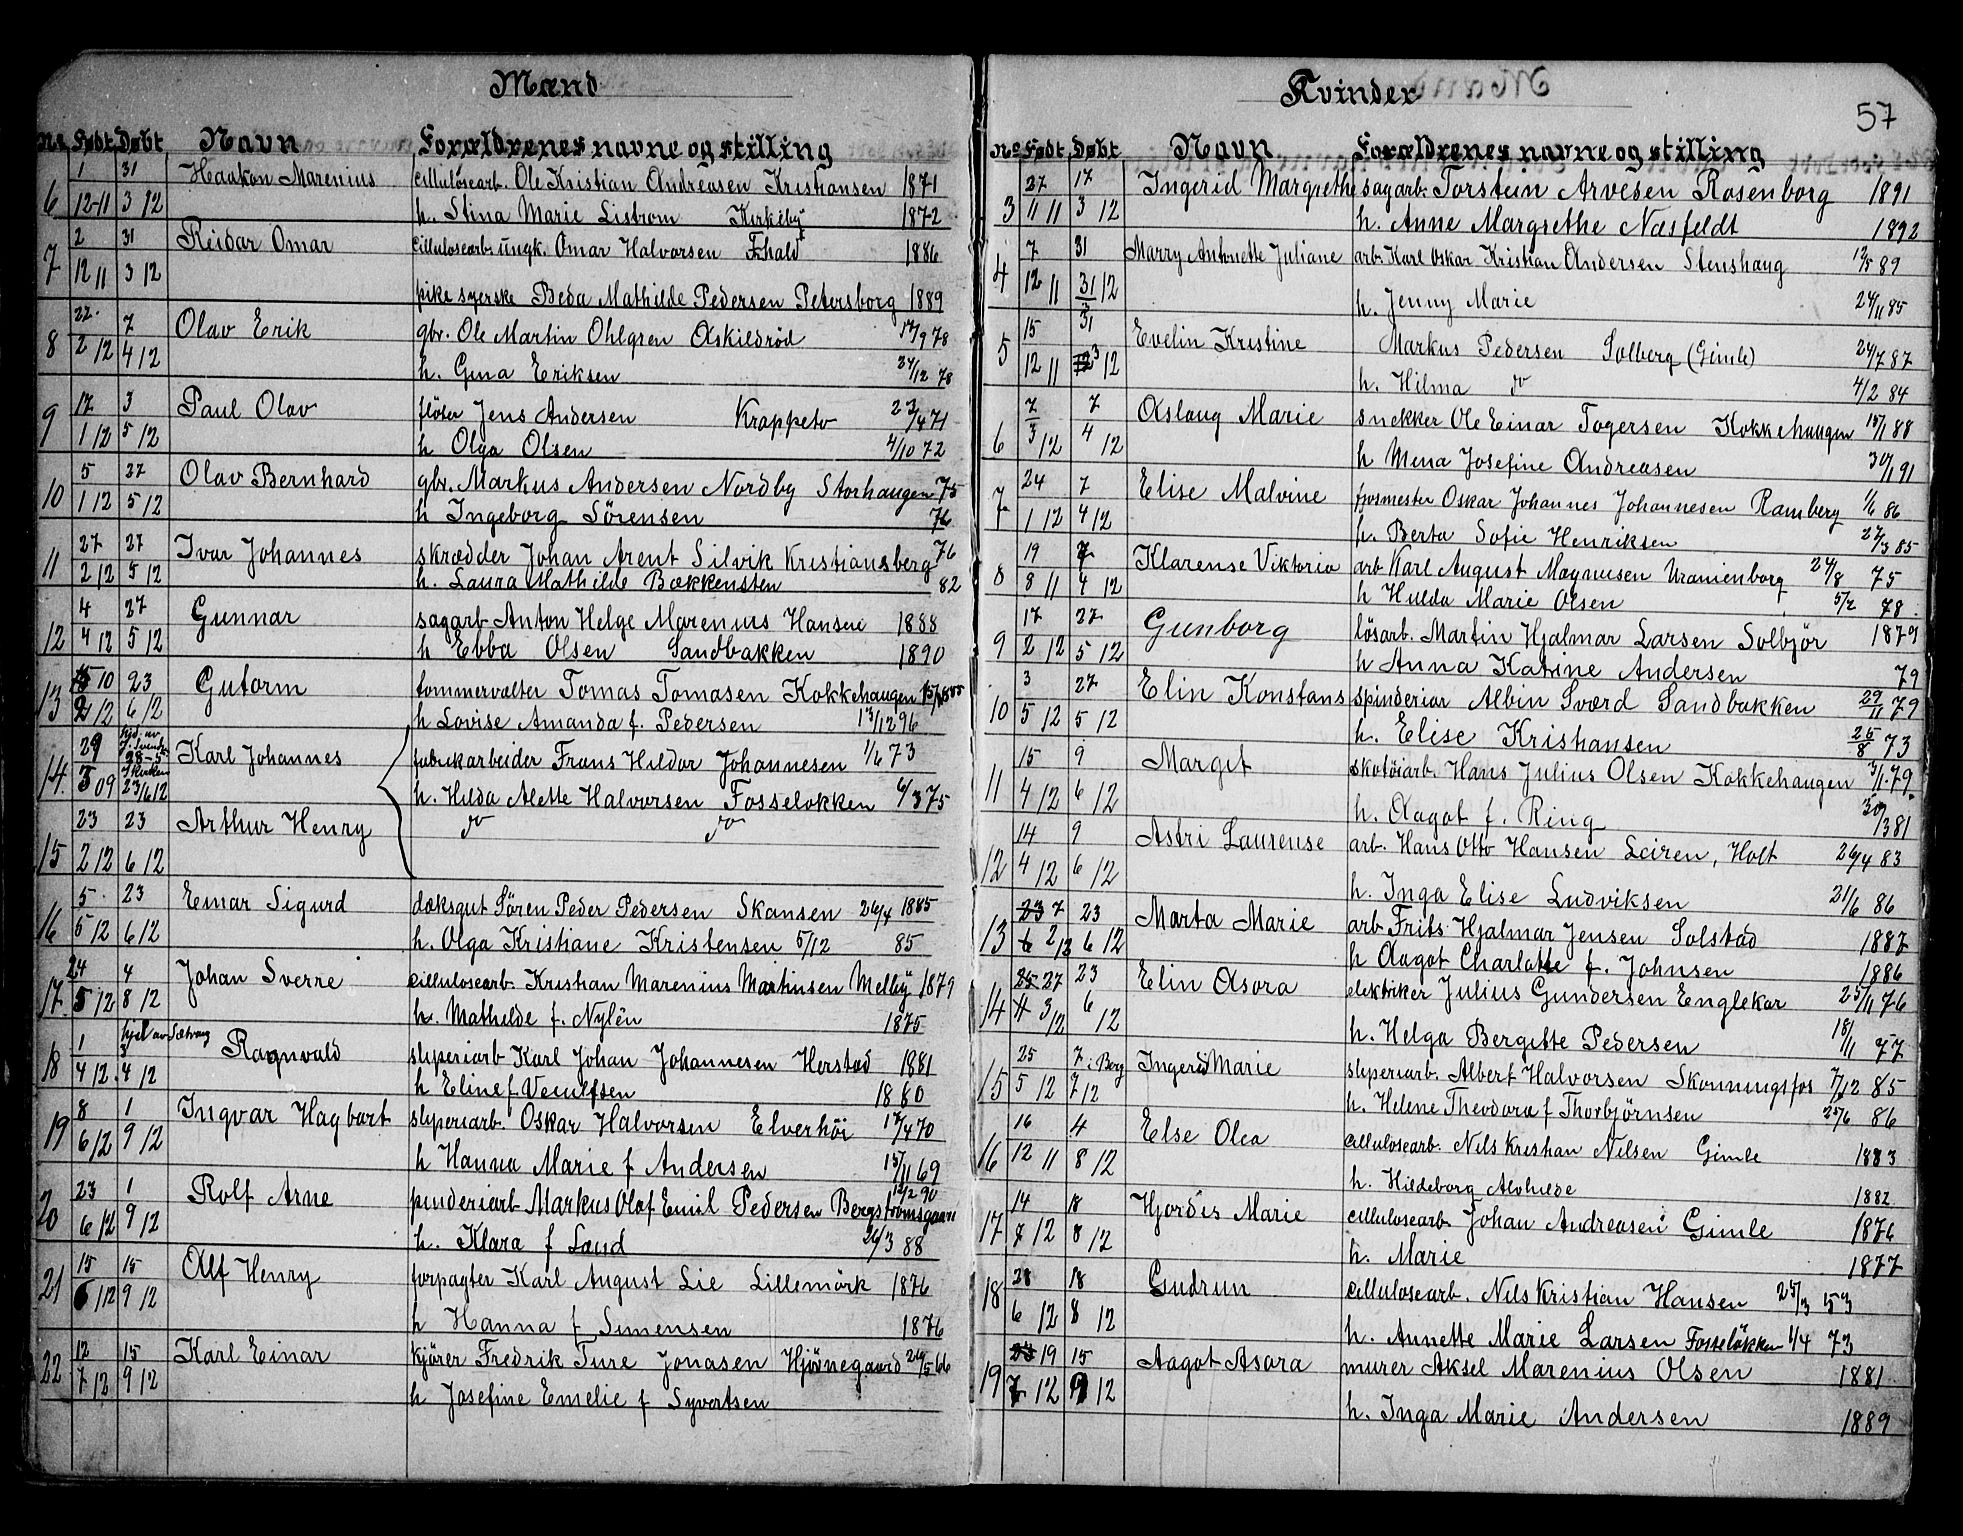 Mænd
No Født Døbt Navn Forældrenes navne og stilling
6 1 31 Haakon Marenius cillulosearb. Ole Kristian Andreasen Kristiansen 1871
12-11 3 12 h. Stina Marie Listrom Kirkeby 1872
7 2 31 Reidar Omar cillulosearb. ungk. Omar Halvorsen Fhald 1886
12 11 3 12 pike syerske Beda Mathilde Pedersen Petersborg 1889
8 22 7 Olav Erik gbr. Ole Martin Ohlgren Askildrød 17/9 78
2 12 4 12 h. Gina Eriksen 24/12 78
9 17 3 Paul Olav fløter Jens Andersen Krappeto 23/4 71
1 12 5 12 h Olga Olsen 4/10 72
10 5 27 Olav Bernhard gbr. Markus Andersen Nordby Storhaugen 75
1 12 5 12 h Ingeborg Sörensen 76
11 27 27 Ivar Johannes skrædder Johan Arent Silvik Kristiansberg 76
2 12 5 12 h. Laura Mathilde Bækkensten 82
12 4 27 Gunnar sagarb Anton Helge Marenius Hansen 1888
4 12 5 12 h Ebba Olsen Sandbakken 1890
13 15 10 23 Gutorm tommervælter Tomas Tomasen Kokkehaugen
2 12 6 12 h Lovise Amanda f. Pedersen 13/12 96
14. 29 hjd. av J. Svends 28-5 Karl Johannes fabrikarbeider Frans Hildor Johannesen 1/6 73
3 09 i kirken 23/6 12 h. Hilda Alette Halvorsen Fosseløkken 6/3 75
15 23 23 Arthur Henry do do
2 12 6 12
16 5 23 Einar Sigurd dæksgut Sören Peder Pedersen Skansen 26/4 1885
5 12 6 12 h. Olga Kristiane Kristensen 5/12 85
17. 24 4 Johan Sverre cillulosearb. Kristian Marenius Martinsen Melby 1879
5 12 8 12 h. Mathilde f. Nylén 1875
18 1 hjd av Sætrang 3 Ragnvald sliperiarb Karl Johan Johannesen Herstad 1881
4 12. 4 12 h Eline f. 1880
19 8 1 Ingvar Hagbart sliperiarb. Oskar Halvorsen Elverhöi 17/4 70
6 12 9 12 h Hanna Marie f Andersen 15/11 69
20 23 1 Rolf Arne pinderiarb Markus Olaf Emil Pedersen Bergstrømsgaard 12/2 90
6 12 9 12 h. Klara f Lund 26/3 88
21 15 15 Alf Henry forpagter Karl August Lie Lillemörk 1876
6 12 9 12 h Hanna f Simensen 1876
22 12 15 Karl Einar kjörer Fredrik Ture Jonasen Hjörnegaard 26/5 66
7 12 9 12 h Josefine Emelie f Syvertsen
Kvinder
57
No Født Døbt Navn Forældrenes navne og stilling
3 27 17 Ingerid Margrethe sagarb. Torstein Arvesen Rosenborg 1891
11 11 3 12 h. Anne Margrethe Næsfeldt 1892
4 7 31 Marry Antonette Juliane arb. Karl Oskar Kristian Andersen Stenshaug 12/5 89
12 11 31/3 12 h. Jenny Marie 24/11 85
5 15 31 Evelin Kristine Markus Pedersen Solberg (Gimle) 24/7 87
12 11 3 12 h. Hilma do 4/2 84
6 7 7 Aslaug Marie snekker Ole Einar Togersen Kokkehaugen 15/1 88
3 12 4 12 h Mena Josefine Andreasen 30/1 91
7 24 7 Elise Malvine formester Oskar Johannes Johannesen Ramberg 1/6 86
1 12 4 12 h. Berta Sofie Henriksen 22/3 85
8 19 7 Klarense Viktoria arb Karl August Magnusen Uranienborg 24/8 75
8 11 4 12 h Hulda Marie Olsen 5/2 78
9 17 27 Gunborg lösarb. Martin Hjalmar Larsen Solbjör 1879
2 12 5 12 h Anna Katrine Andersen 79
10 3 27 Elin Konstans spinderiar Albin Sværd Sandbakken 29/11 79
5 12 5 12 h. Elise Kristiansen 26/8 73
11 15 9 Margit skotöiarb. Hans Julius Olsen Kokkehaugen 3/1 79.
4 12 6 12 h. Aagot f. Ring 30/3 81
12 14 9 Astri Laurense arb. Hans Otto Hansen Leiren, Holt 26/4 83
4 12 6 12 h. Inga Elise Ludviksen 21/6 86
13 23 7 23 Marta Marie arb Frits Hjalmar Jensen Solstad 1887
6 2 12 6 12 h Aagot Charlotte f. Johnsen 1886
14 25 27 23 Elin Asora elektriker Julius Gundersen Englekor 25/11 76
4 3 12 6 12 h. Helga Bergitte Pedersen 18/11 77
15 25 7. Berg Ingerid Marie sliperiarb. Albert Halvorsen Skonningsfos 7/12 85
5 12 7 12 h. Helene Theodora f Thorbjørnsen 25/6 86
16 16 4 Else Olea cillulosearb. Nils Kristian Nilsen Gimle 1883
12 11 8 12 h. Hildeborg Alvhilde 1882
17 14 18 Hjordis Marie cillulosearb. Johan Andreasen Gimle 1876
7 12 8 12 h. Marie 1877
18 28 18 Gudrun cillulosearb. Nils Kristian Hansen 25/3 53
6 12 8 12 h. Annette Marie Larsen Fosselökken 1/4 73
19 23 19 15 Aagot Asora murer Aksel Marenius Olsen 1881
7 12 9 12 h. Inga Marie Andersen 1889